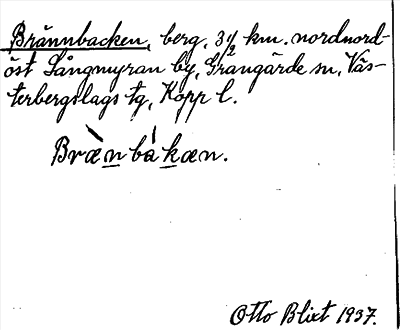 Brännbacken, berg, 3 1/2 km. nordnord-
öst Sångmyran by, Grangärde sn, Väs-
terbergslags tg, Kopp l.
Bræ̀nbákæn.
Otto Blixt 1937.